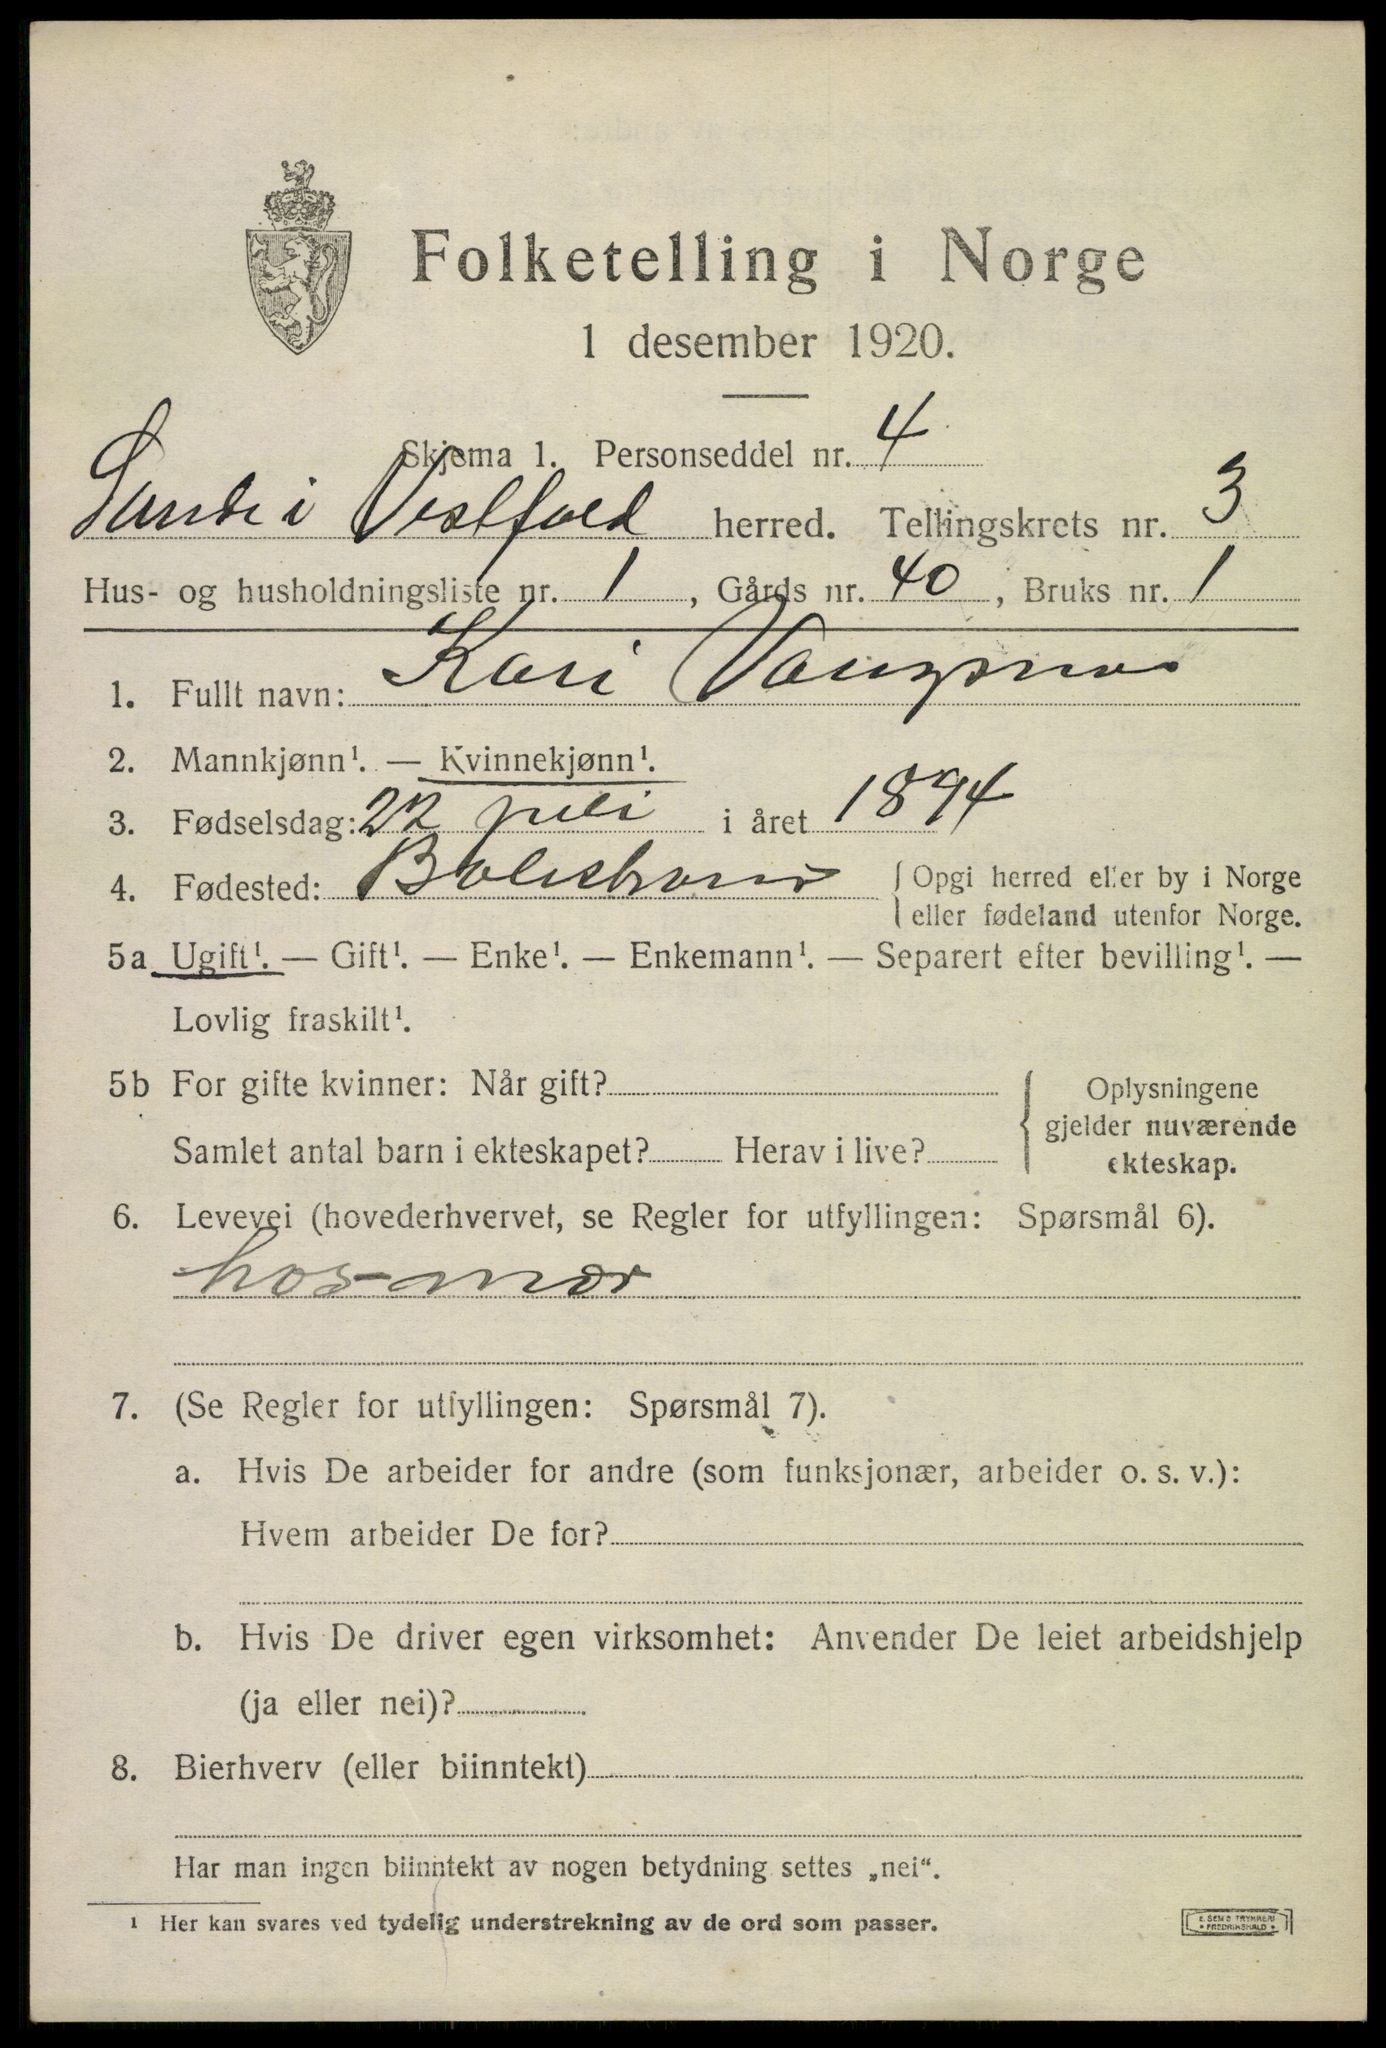 Folketelling i Norge
1 desember 1920.
Skjema 1. Personseddel nr. 4
Sande i Vestfold herred. Tellingskrets nr. 3
Hus- og husholdningsliste nr. 1, Gårds nr. 40, Bruks nr. 1
1. Fullt navn: Kari Vangsnes
2. Mannkjønn¹. — Kvinnekjønn¹.
3. Fødselsdag: 22 juli i året 1894
4. Fødested: Balestrand { Opgi herred eller by i Norge
eller fødeland utenfor Norge.
5a Ugift¹. — Gift¹. — Enke¹. — Enkemann¹. — Separert efter bevilling¹. —
Lovlig fraskilt¹.
5b For gifte kvinner: Når gift? { Oplysningene
gjelder nuværende
Samlet antal barn i ekteskapet? Herav i live? ekteskap.
6. Levevei (hovederhvervet, se Regler for utfyllingen: Spørsmål 6).
hos mor
7. (Se Regler for utfyllingen: Spørsmål 7).
a. Hvis De arbeider for andre (som funksjonær, arbeider o. s. v.):
Hvem arbeider De for?
b. Hvis De driver egen virksomhet: Anvender De leiet arbeidshjelp
(ja eller nei)?
8. Bierhverv (eller biinntekt)
Har man ingen biinntekt av nogen betydning settes „nei“.
¹ Her kan svares ved tydelig understrekning av de ord som passer.
E. SEM'S TRYKKERI
FREDRIKSHALD